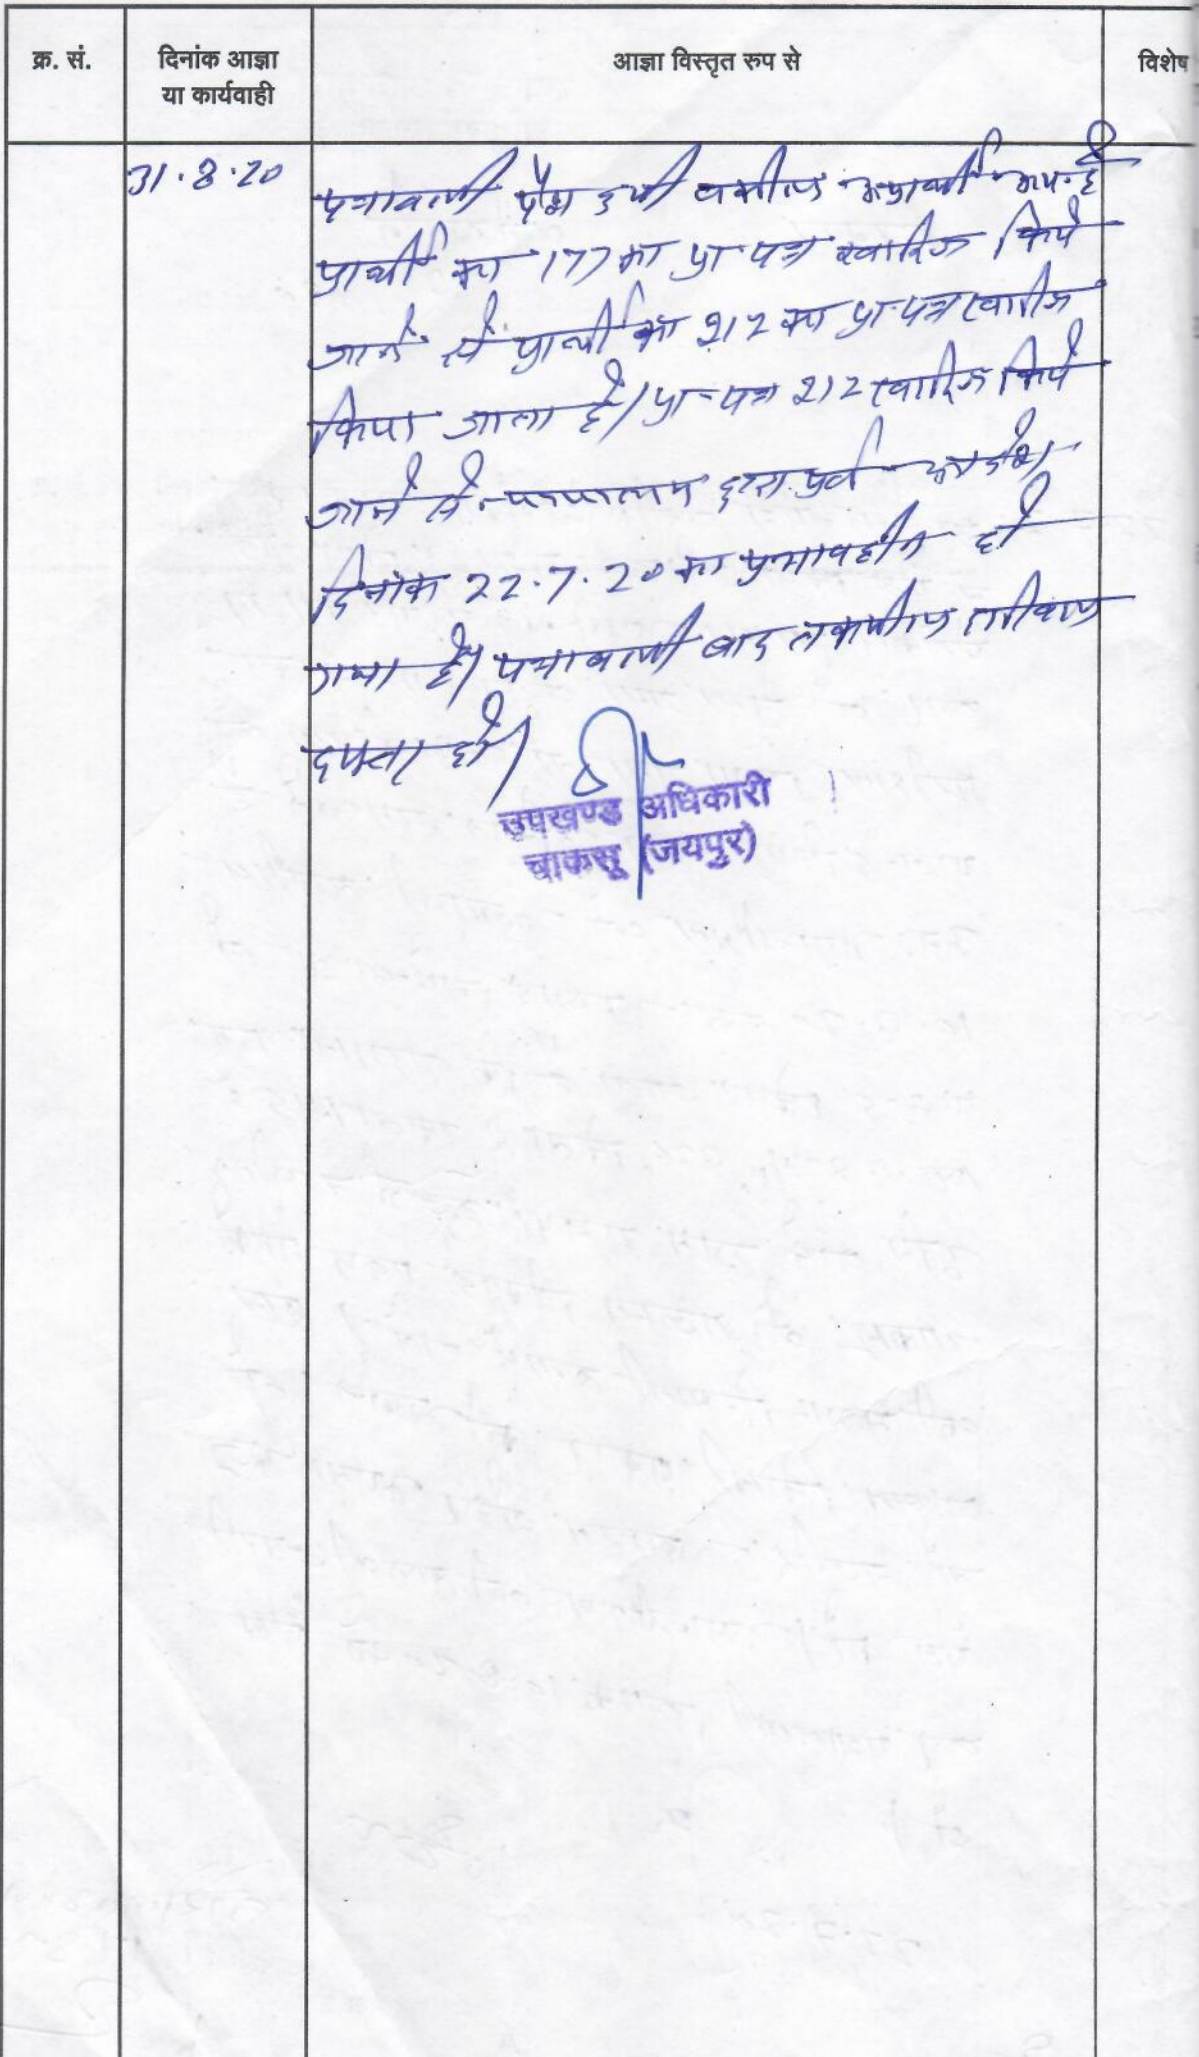 क्र. सं.
दिनांक आज्ञा
या कार्यवाही
आज्ञा विस्तृत रुप से
विशेष
31.8.20
पत्रावली पेश हुयी वकील अप्रार्थी उप. है
प्रार्थी का 177 का प्रा. पत्र खारिज किये
जाने से प्रार्थी का 212 का प्रा. पत्र खारिज
किया जाता है। प्रा. पत्र 212 खारिज किये
जाने से न्यायालय द्वारा पूर्व आदेश
दिनांक 22.7.20 का प्रभावहीन हो
गया है। पत्रावली बाद तकमील दाखिल
दफ्तर हो।
उपखण्ड अधिकारी
चाकसू (जयपुर)